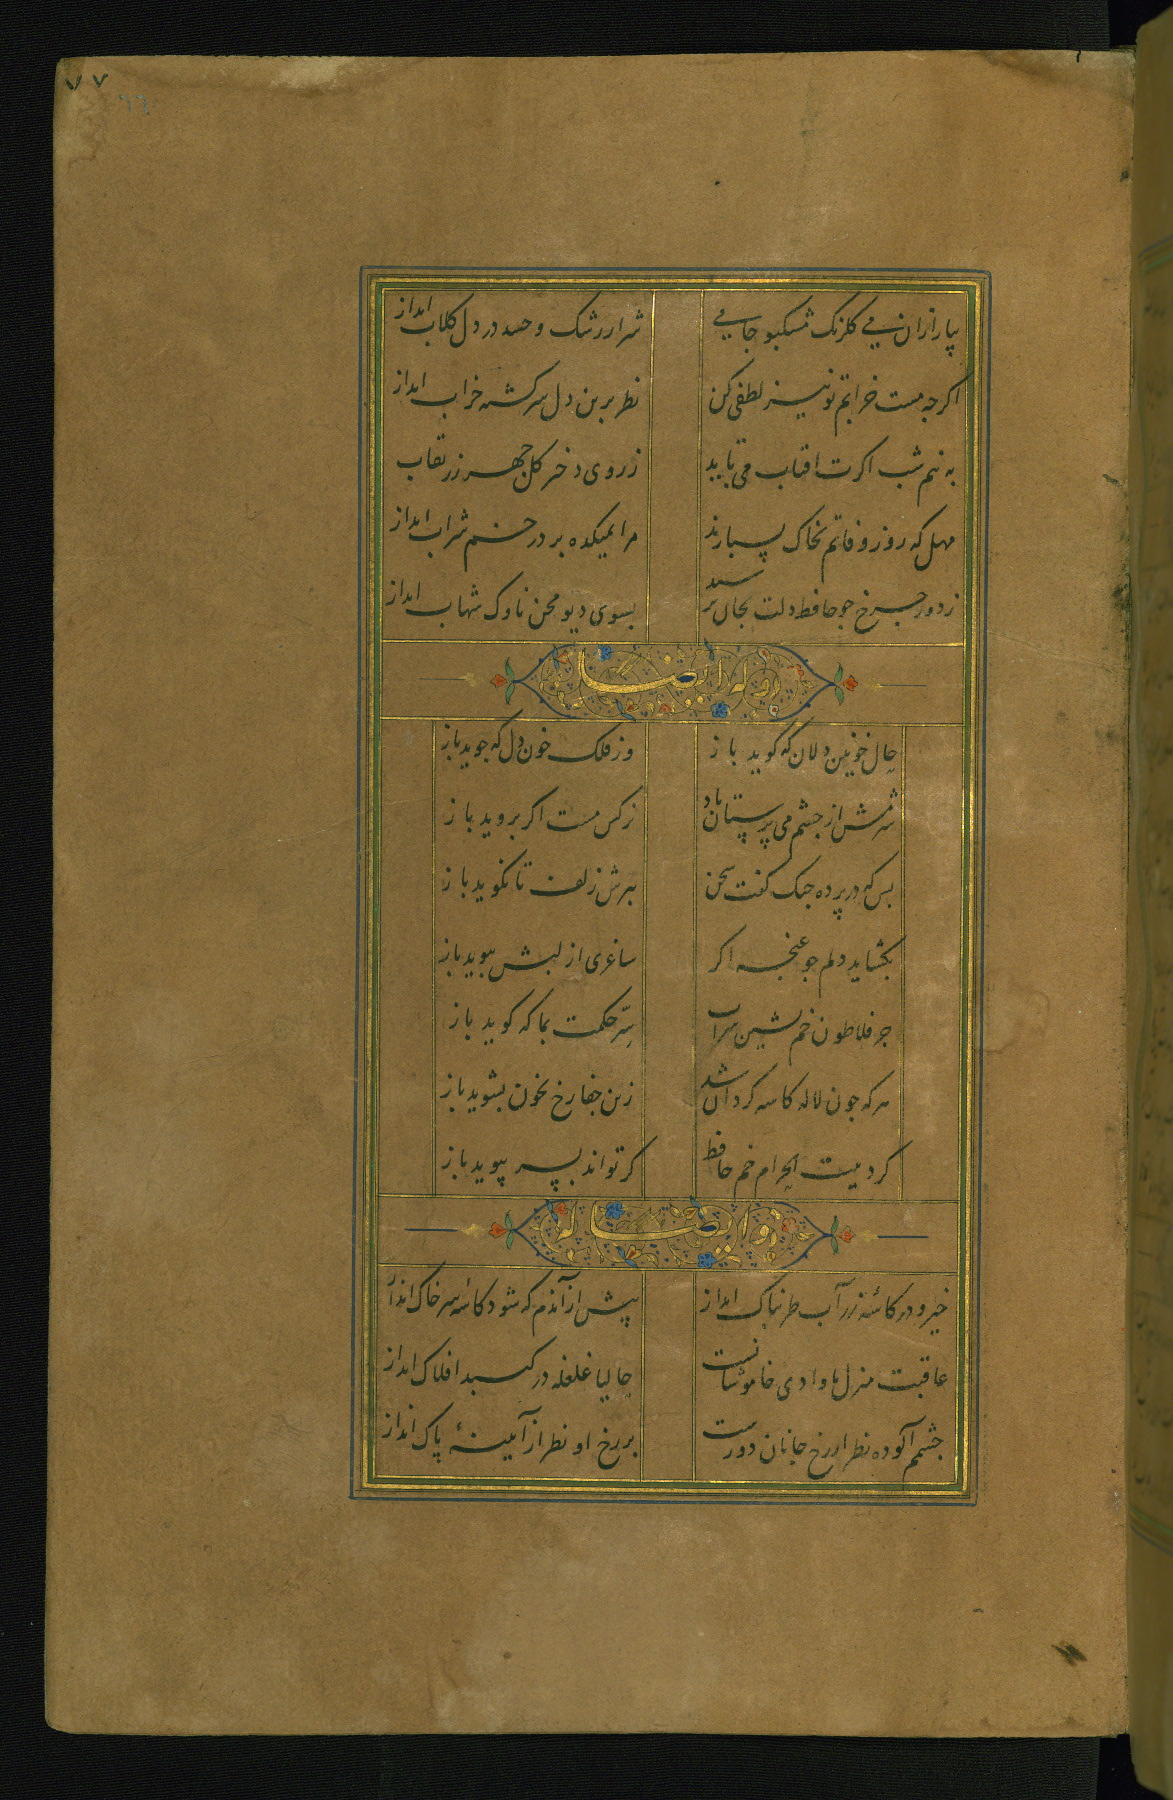 ۷۷
۶۶
بیار ازان می کلرنک مشکبو جامی
شرار رشک و حسد در دل کلاب انداز
اکرجه مست خرابم تو نیز لطفی کن
نظر برین دل سرکشته خراب انداز
به نیم شب اکرت افتاب می باید
ز روی دختر کلجهر رز نقاب
مهل که روز وفاتم بخاک بسپارند
مرا بمیکده بر در خم شراب انداز
ز دور جرخ جو حافظ دلت بجان برسید
بسوی دیو محن ناوک شهاب انداز
وله ایضا
حال خونین دلان که کوید باز
وز فلک خون دل که جوید باز
شرمش از جشم می پرستان باد
نرکس مست اکر بروید باز
بس که در پرده جنک کفت سخن
ببرش زلف تا نکوید باز
بکشاید دلم جو غنجه اکر
ساغری از لبش ببوید باز
جز فلاطون خم نشین شراب
سر حکمت بما که کوید باز
هر که جون لاله کاسه کردان شد
زین جفا رخ بخون بشوید باز
کرد بیت الحرام خم حافظ
کر تواند بسر ببوید باز
وله ایضا
خیز و در کاسه زر آب طربناک انداز
پیش از آندم که شود کاسه سر خاک انداز
عاقبت منزل ما وادی خاموشانست
حالیا غلغله در کنبد افلاک انداز
جشم آلوده نظر از رخ جانان دورست
بر رخ او نظر از آیینهٔ پاک انداز